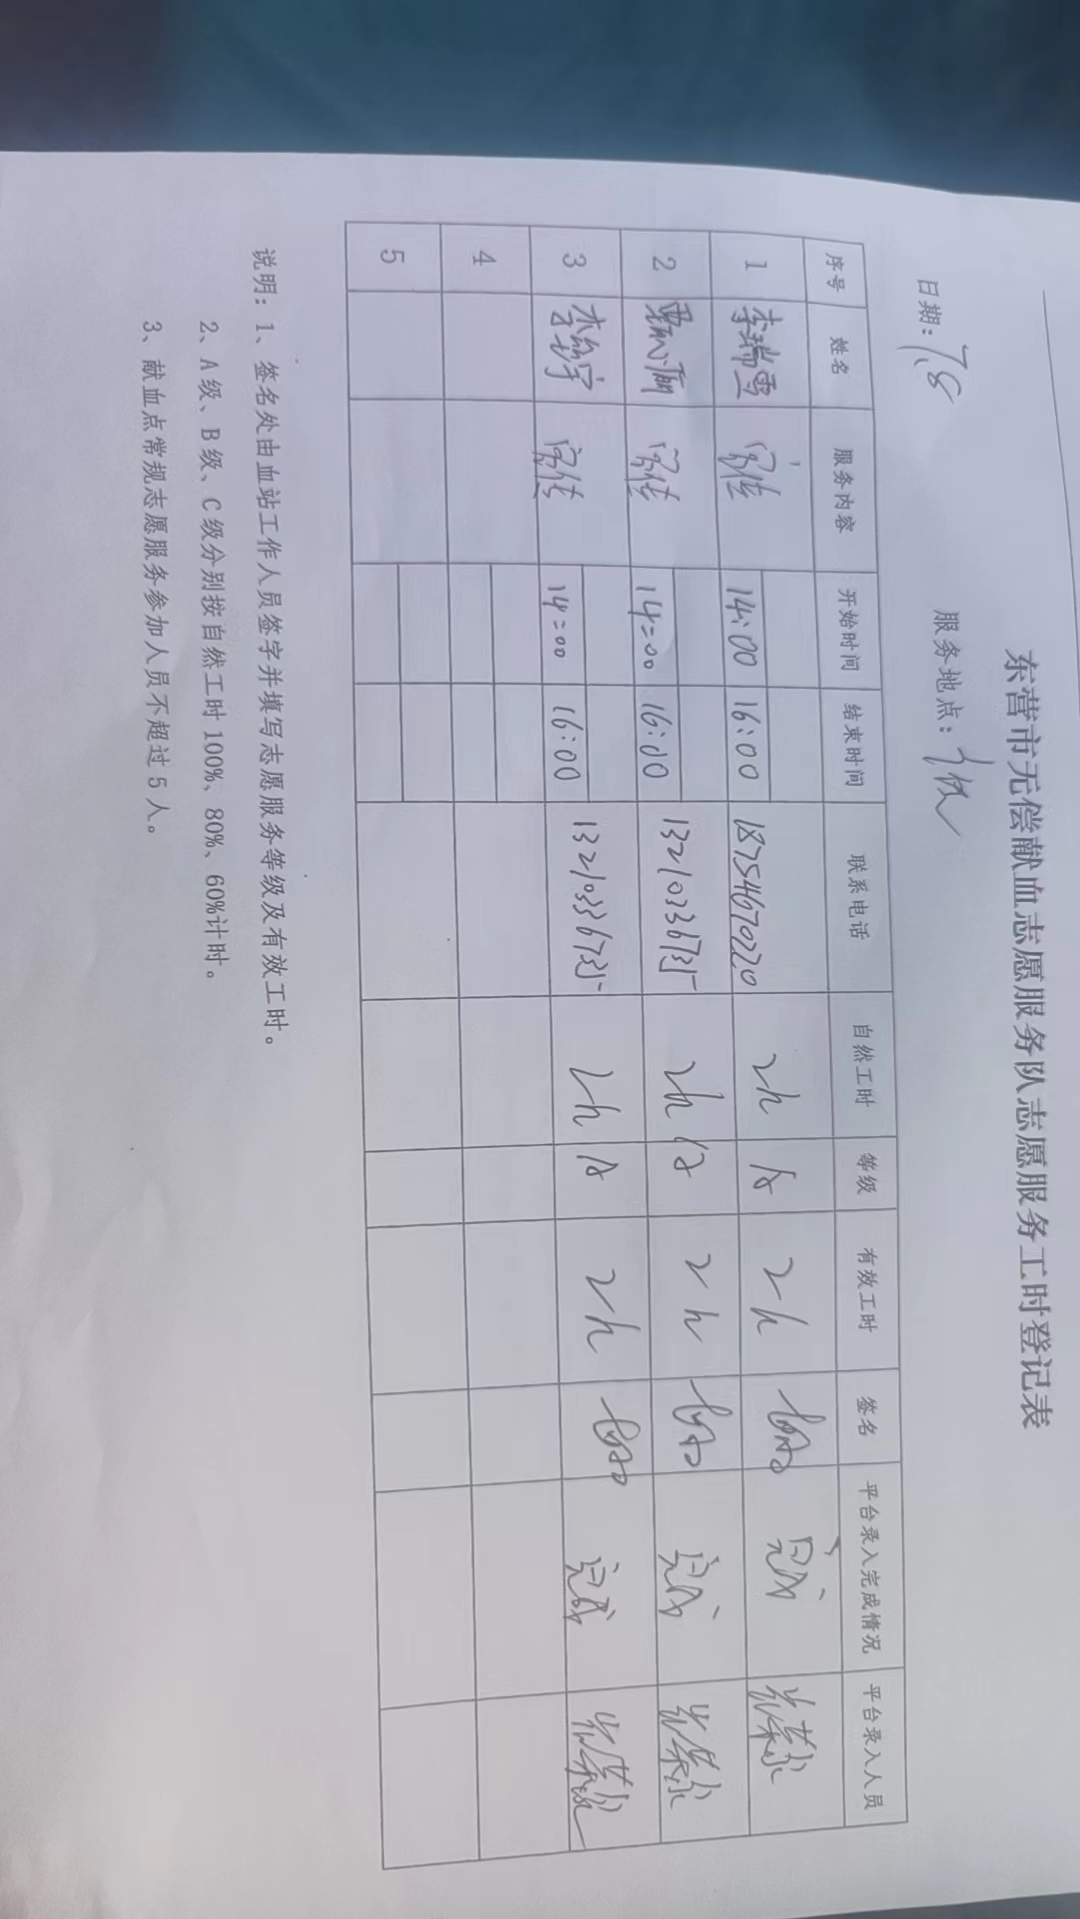 东营市无偿献血志愿服务队志愿服务工时登记表
日期：7.8 服务地点：
序号 姓名 服务内容 开始时间 结束时间 联系电话 自然工时 等级 有效工时 签名 平台录入完成情况 平台录入人员
1 李瑞雪 宣传 14:00 16:00 18754670220 2h A 2h 完成
2 宣传 14:00 16:00 2h A 2h 完成
3 宣传 14:00 16:00 2h A 2h 完成
4
5
说明：1、签名处由血站工作人员签字并填写志愿服务等级及有效工时。
2、A级、B级、C级分别按自然工时100%、80%、60%计时。
3、献血点常规志愿服务参加人员不超过5人。